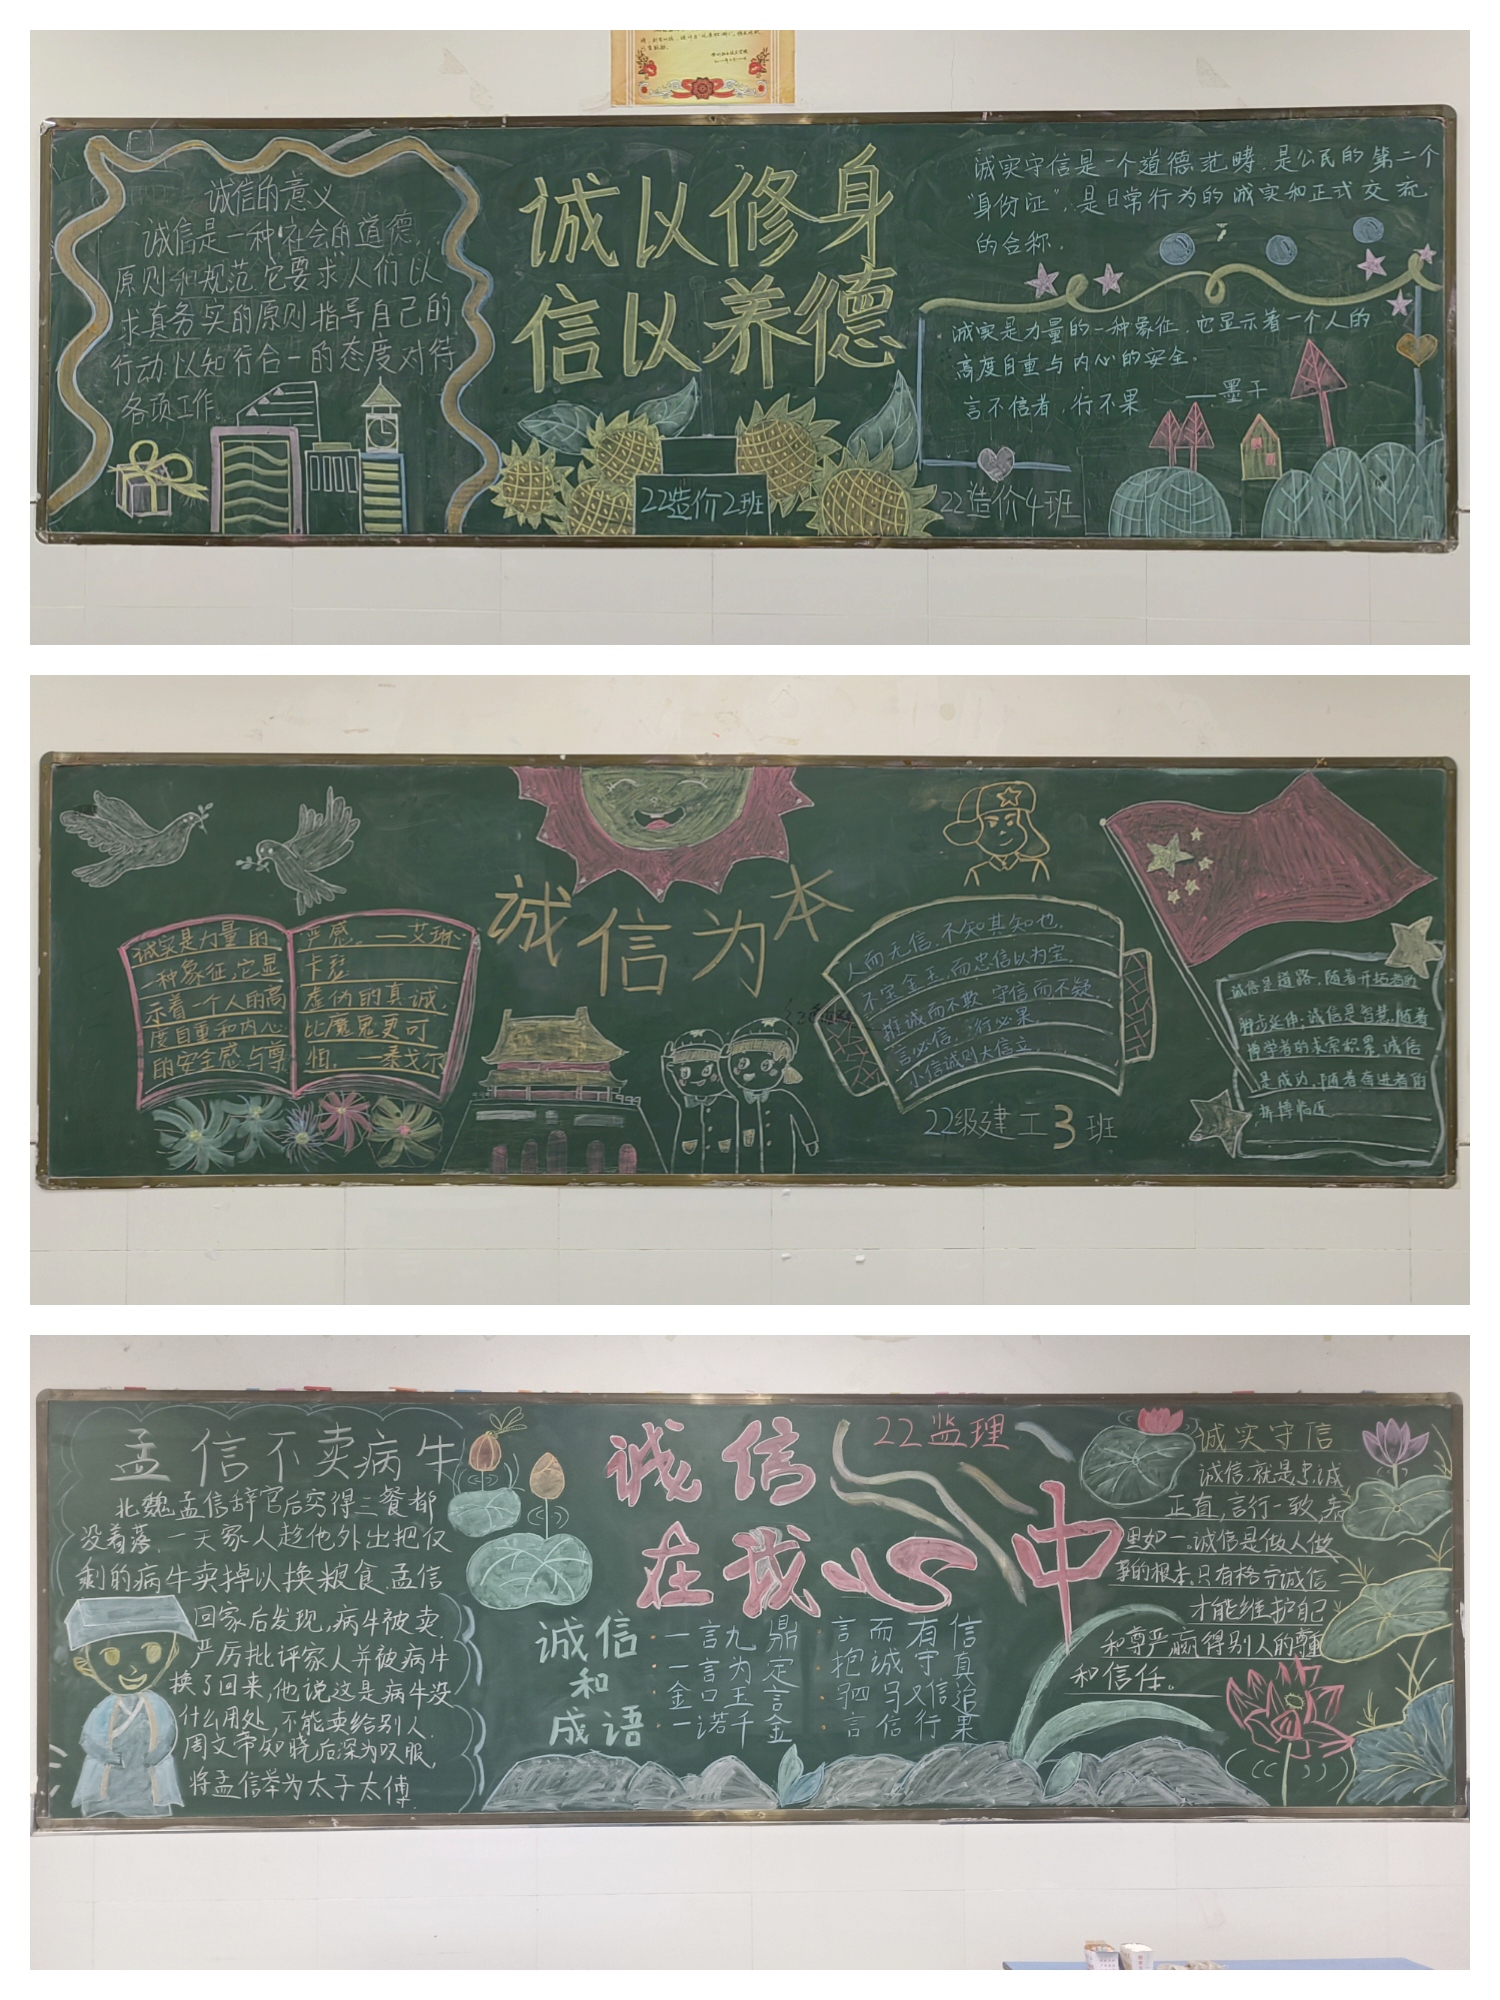 诚信的意义
诚信是一种社会的道德
原则和规范,它要求人们以
求真务实的原则指导自己的
行动,以知行合一的态度对待
各项工作.
诚以修身
信以养德
22造价2班
诚实守信是一个道德范畴.是公民的第二个
“身份证”,是日常行为的诚实和正式交流
的合称.
诚实是力量的一种象征.它显示着一个人的
高度自重与内心的安全。
言不信者,行不果 ——墨子
22造价4班
诚实是力量的
一种象征,它显
示着一个人的高
度自重和内心
的安全感与尊
严感。—艾琳·
卡瑟
虚伪的真诚,
比魔鬼更可
怕.—泰戈尔
诚信为本
人而无信.不知其知也.
不宝金玉,而忠信以为宝.
推诚而不欺 守信而不疑.
言必信.行必果.
小信诚则大信立.
22级建工3班
诚信是道路,随着开拓者的
脚步延伸;诚信是智慧,随着
博学者的求索积累,诚信
是成功,随着奋进者的
拼搏临近.
孟信不卖病牛
北魏孟信辞官后穷得三餐都
没着落.一天家人趁他外出把仅
剩的病牛卖掉以换粮食.孟信
回家后发现,病牛被卖.
严厉批评家人并被病牛
换了回来,他说这是病牛没
什么用处,不能卖给别人.
周文帝知晓后深为叹服,
将孟信举为太子太傅.
诚信
在我心中
22监理
诚信
和
成语
一言九鼎
一言为定
金口玉言
一诺千金
言而有信
抱诚守真
驷马又追
言信行果
诚实守信
诚信,就是忠诚
正直,言行一致,表
里如一。诚信是做人做
事的根本,只有格守诚信
才能维护自己
和尊严赢得别人的尊重
和信任。